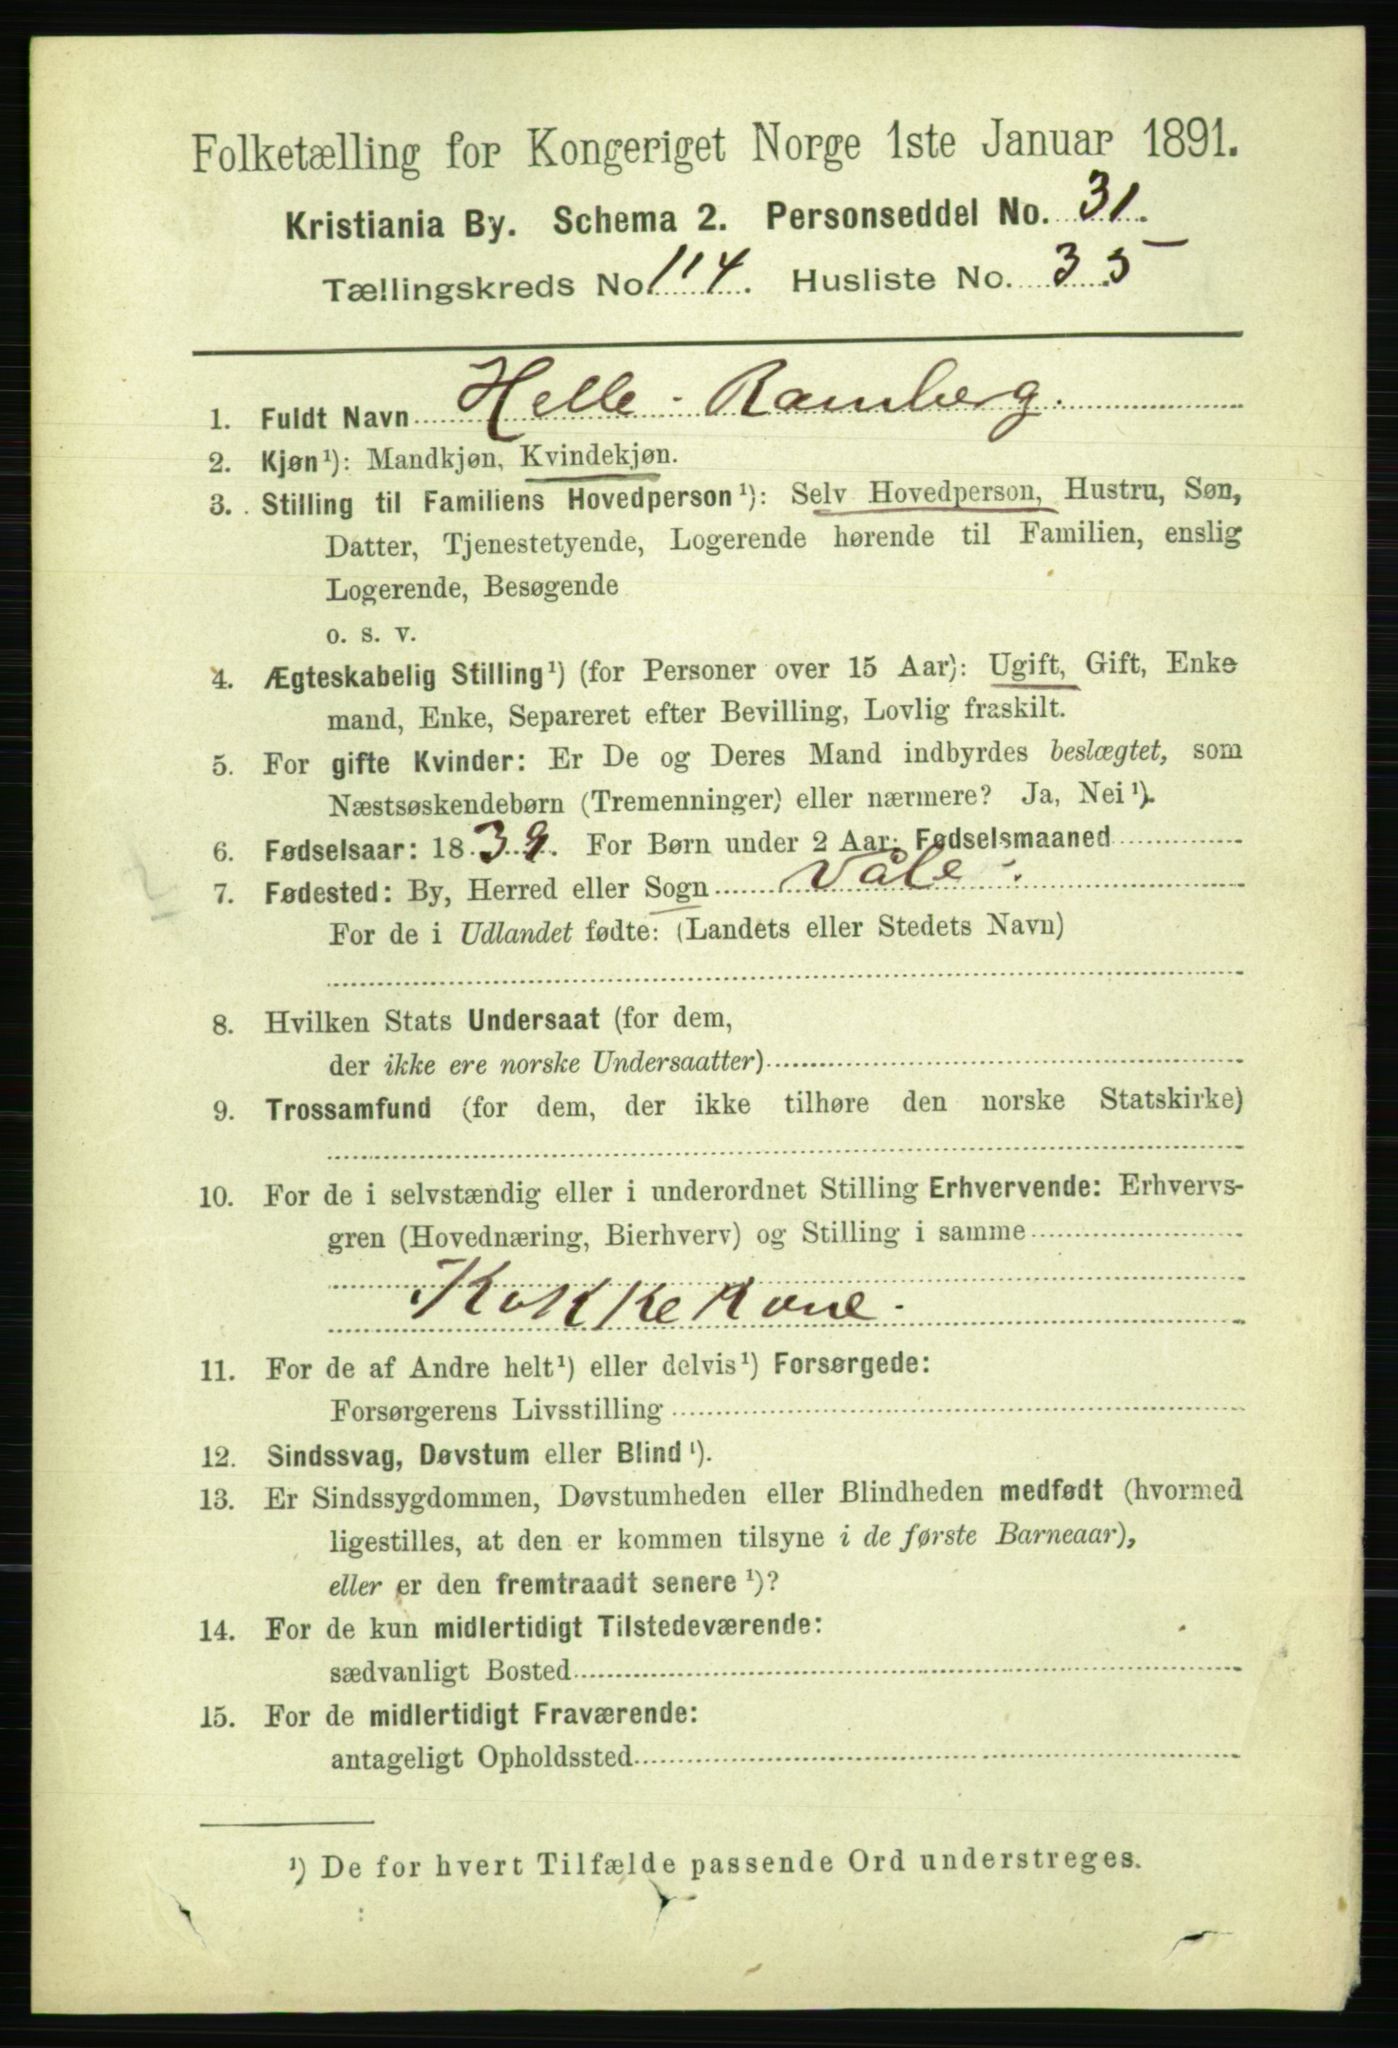 Folketælling for Kongeriget Norge 1ste Januar 1891.
Kristiania By. Schema 2. Personseddel No. 31.
Tællingskreds No 114. Husliste No. 35
1. Fuldt Navn Helle Ramberg.
2. Kjøn¹): Mandkjøn, Kvindekjøn.
3. Stilling til Familiens Hovedperson¹): Selv Hovedperson, Hustru, Søn,
Datter, Tjenestetyende, Logerende hørende til Familien, enslig
Logerende, Besøgende
o. s. v.
4. Ægteskabelig Stilling¹) (for Personer over 15 Aar): Ugift, Gift, Enke
mand, Enke, Separeret efter Bevilling, Lovlig fraskilt.
5. For gifte Kvinder: Er De og Deres Mand indbyrdes beslægtet, som
Næstsøskendebørn (Tremenninger) eller nærmere? Ja, Nei¹).
6. Fødselsaar: 1839. For Børn under 2 Aar: Fødselsmaaned
7. Fødested: By, Herred eller Sogn Våle.
For de i Udlandet fødte: (Landets eller Stedets Navn)
8. Hvilken Stats Undersaat (for dem,
der ikke ere norske Undersaatter)
9. Trossamfund (for dem, der ikke tilhøre den norske Statskirke)
10. For de i selvstændig eller i underordnet Stilling Erhvervende: Erhvervs-
gren (Hovednæring, Bierhverv) og Stilling i samme
Kokkekone.
11. For de af Andre helt¹) eller delvis¹) Forsørgede:
Forsørgerens Livsstilling
12. Sindssvag, Døvstum eller Blind¹).
13. Er Sindssygdommen, Døvstumheden eller Blindheden medfødt (hvormed
ligestilles, at den er kommen tilsyne i de første Barneaar),
eller er den fremtraadt senere¹)?
14. For de kun midlertidigt Tilstedeværende:
sædvanligt Bosted
15. For de midlertidigt Fraværende:
antageligt Opholdssted
¹) De for hvert Tilfælde passende Ord understreges.